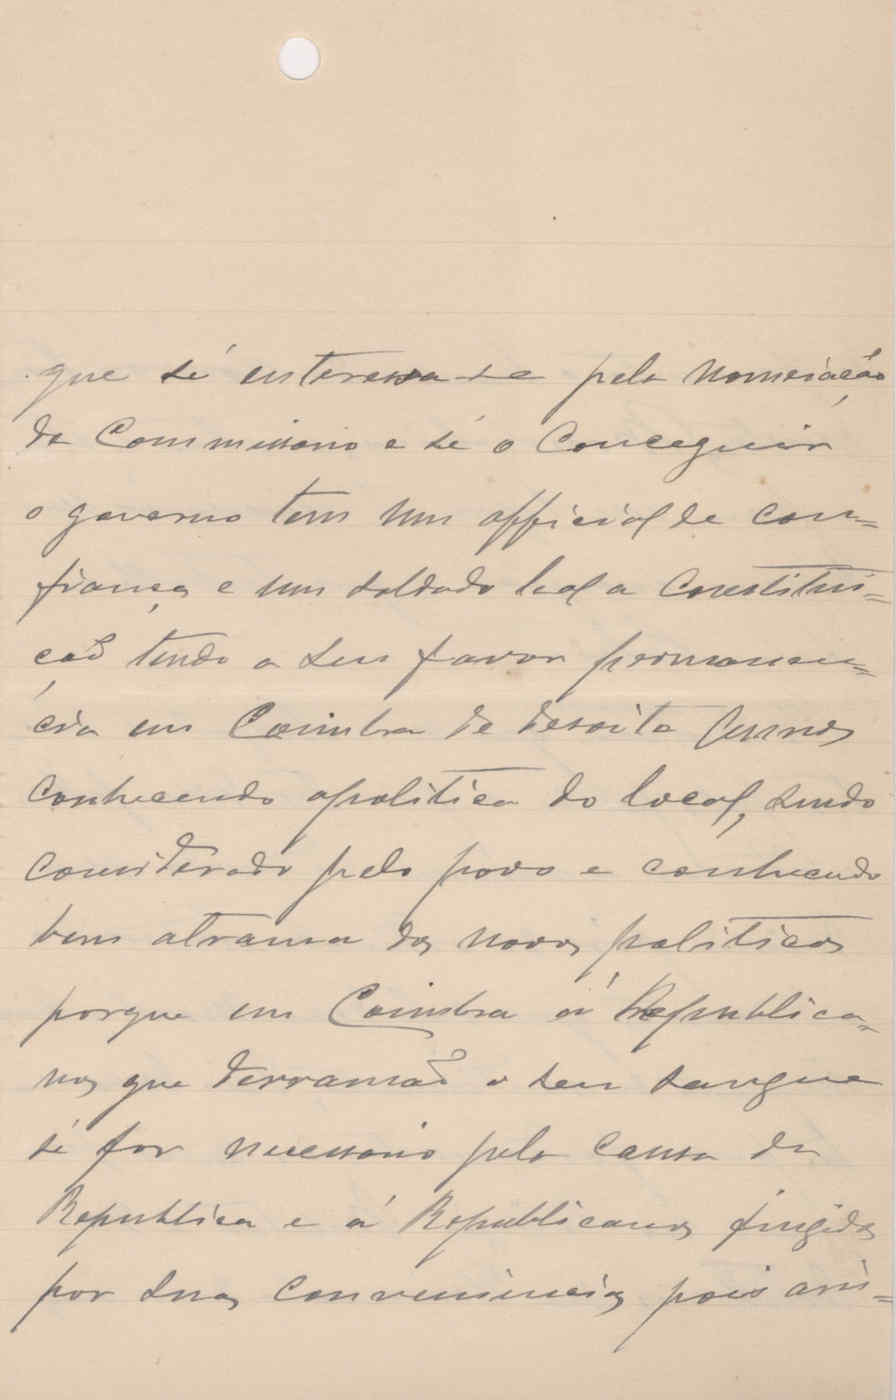 que sé enteressa-se pela nomeiação
do Commissario e sé o Conceguir
o governo tem um official de con=
fiança e um soldado leal a Constitui=
ção tendo a seu favor permanen=
cia em Coimbra de desoito annos
conhecendo apolitica do local, sendo
considerado pelo povo e conhecendo
bem atrama dos novos politicos
porque em Coimbra á Republica=
nos que derramaõ o seu sangue
sé for necessario pela causa da
Republica e á Republicanos fingidos
por suas conveniencias pois